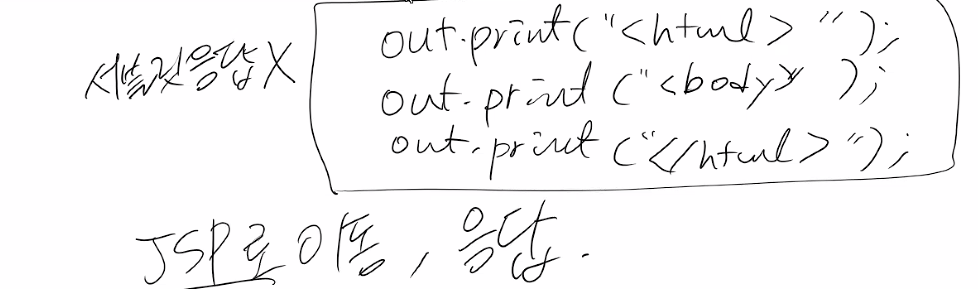 서블릿응답 X
out.print("<html> ");
out.print ("<body> );
out.print ("</html> ");
JSP로 이동, 응답.